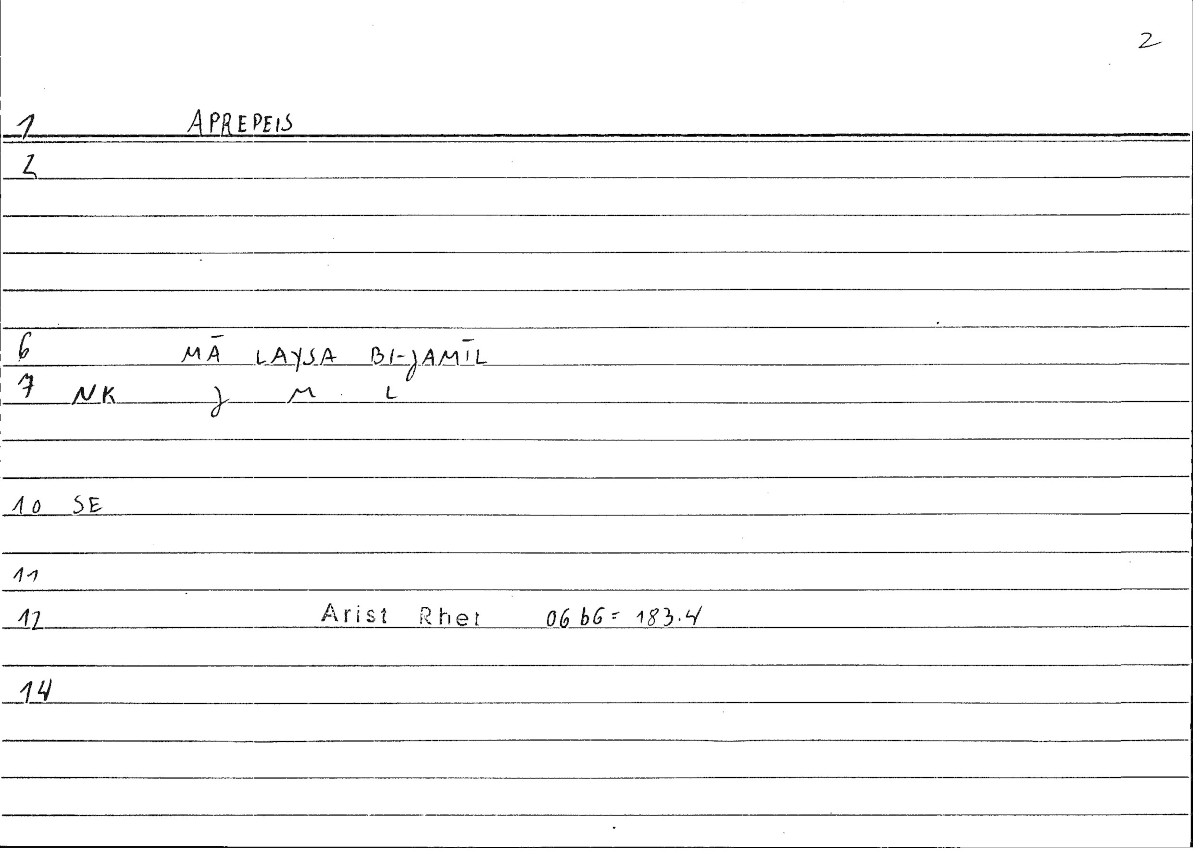 2
1 APREPEIS
2
6 MĀ LAYSA BI-JAMĪL
7 NK J M L
10 SE
11
12 Arist Rhet 06 b6 = 183.4
14